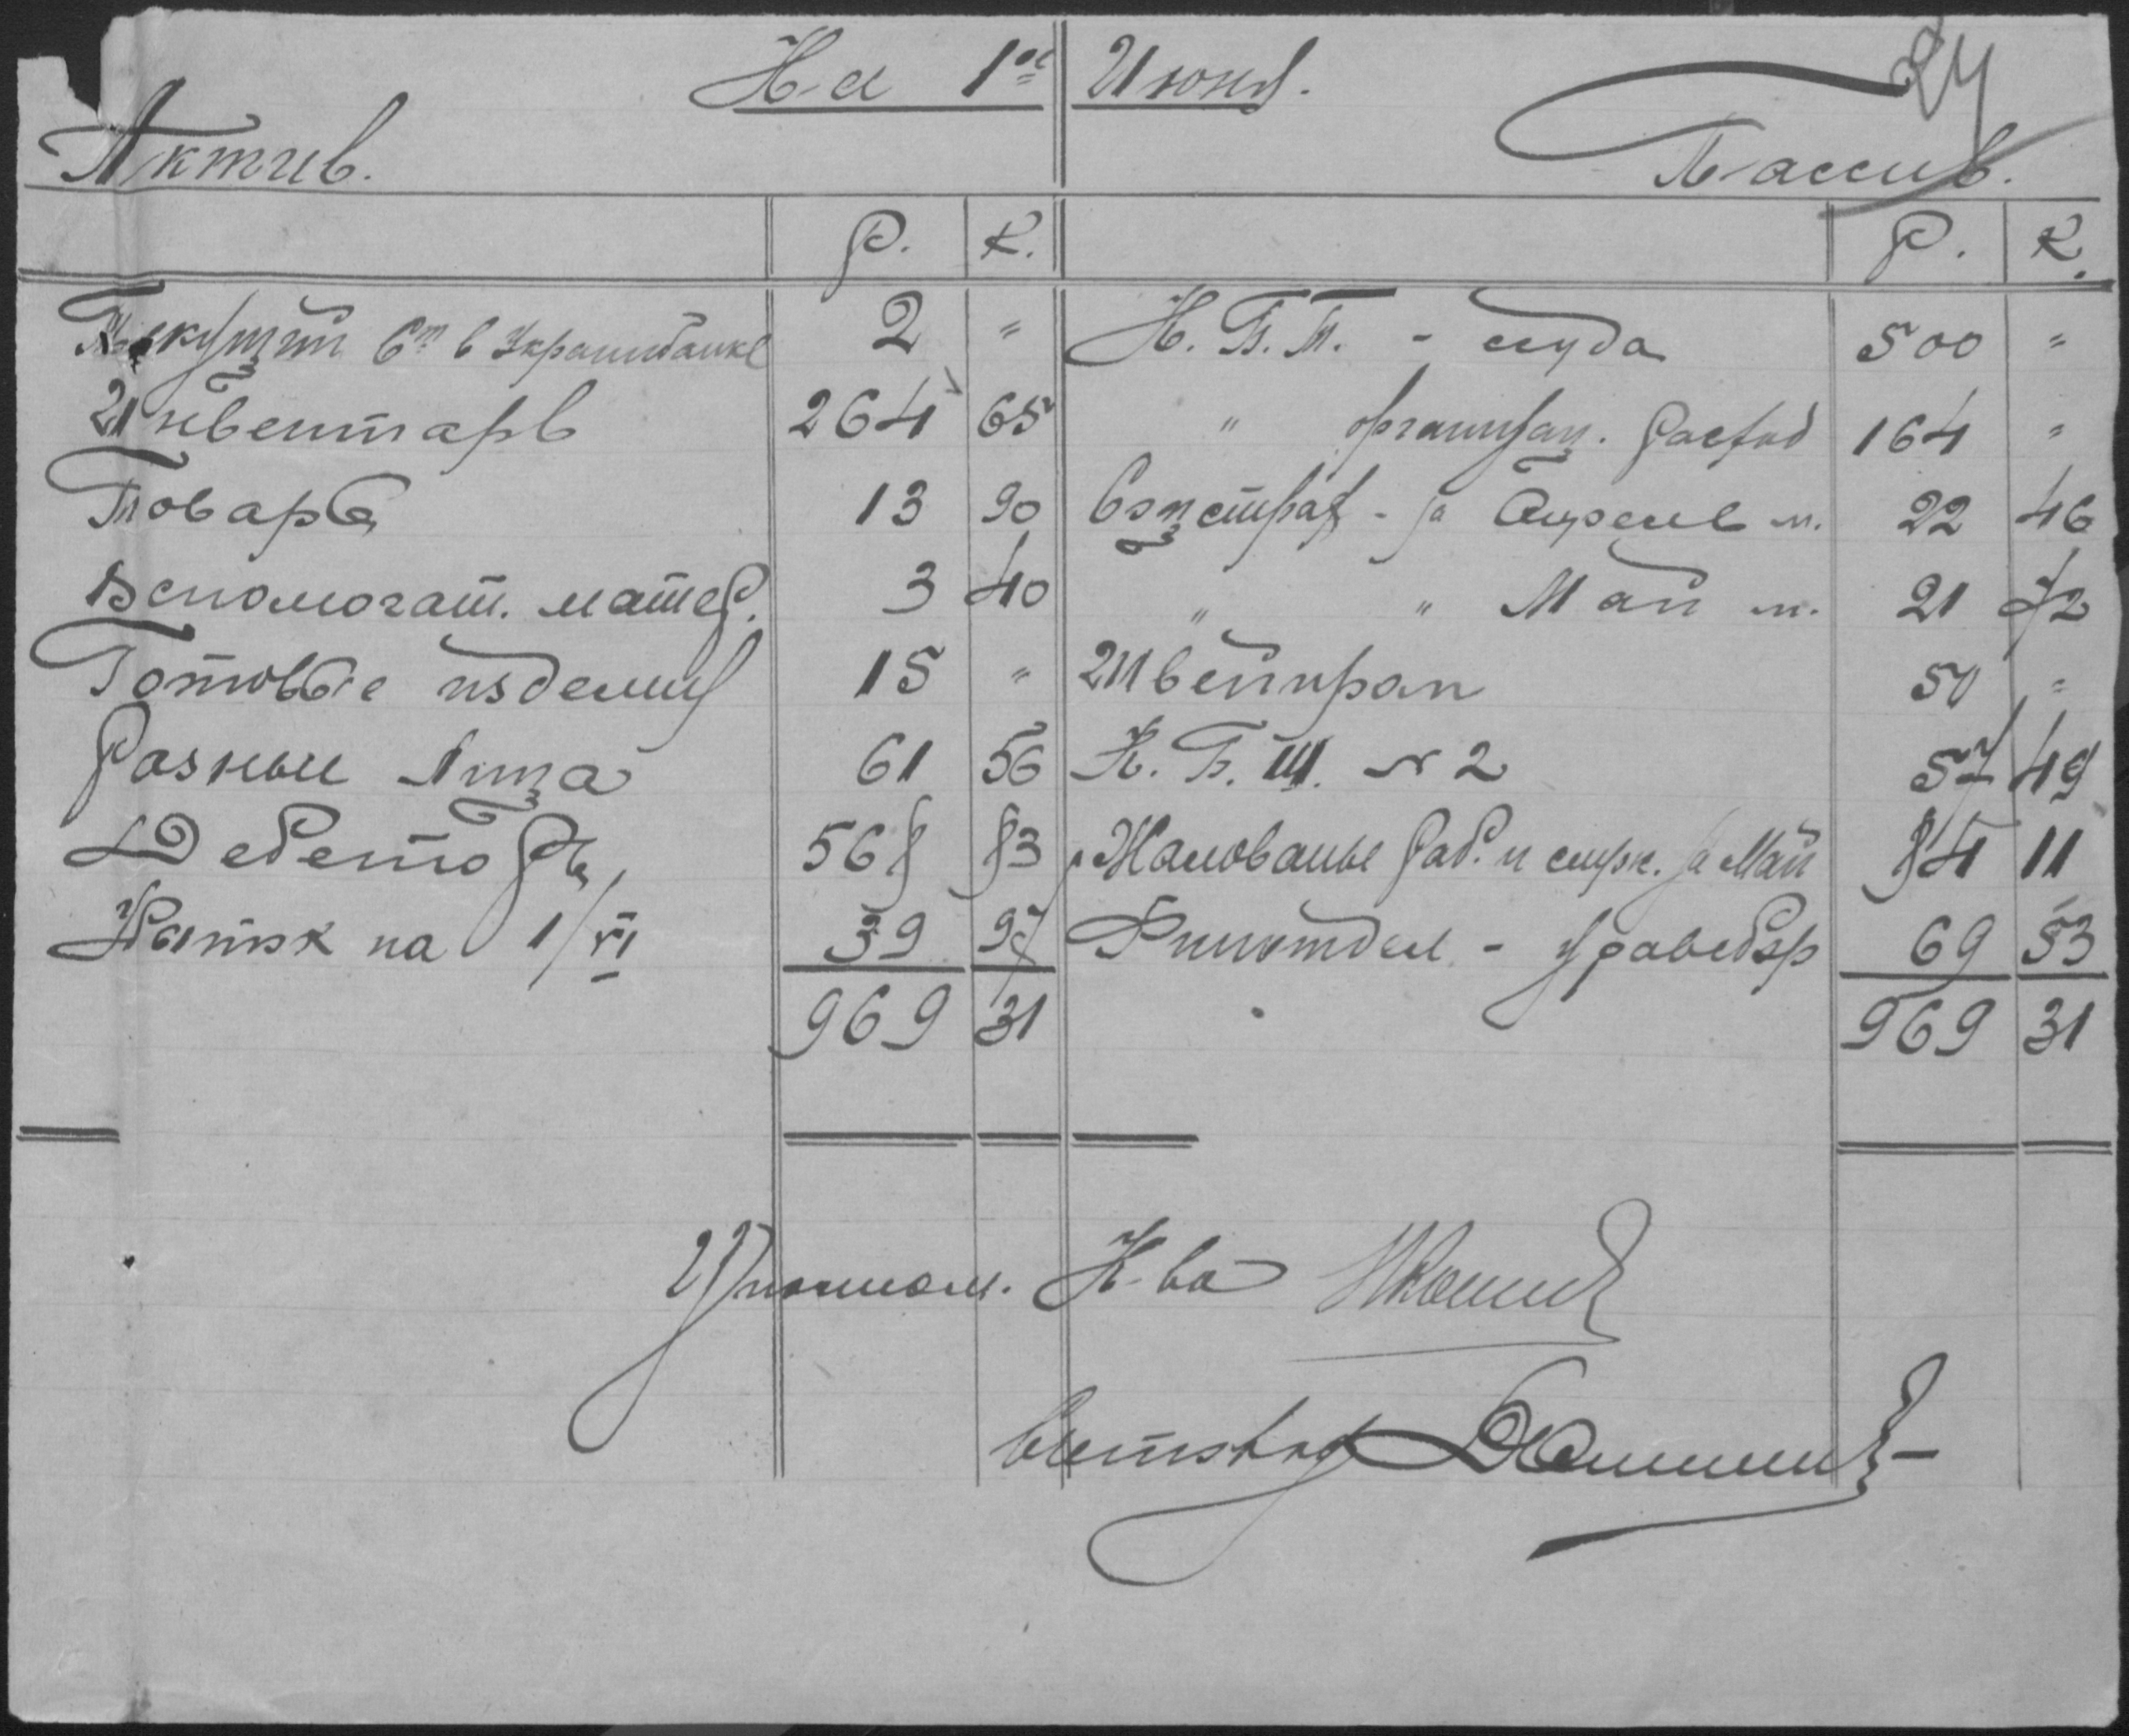 24
На 1ое Июня.
Актив. Пассив.
Р. К. Р. К.
Текущий Сч в Украинбанке 2 " Н.Б.П. - ссуда 500 "
Инвентарь 264 65 " организац. расход 164 "
Товары 13 90 Соцстрах - за Апрель м. 22 46
Вспомогат. матер. 3 40 " " Май м. 21 72
Готовые изделия 15 " Швейпром 50 "
Разные лица 61 56 К.Б.Ш. № 2 57 49
Дебеторы 568 83 Жалованье раб. и служ. за Май 84 11
Убыток на 1/VI 39 97 Финотдел - уравсбор 69 53
969 31 969 31
Уполном. К-ва
Счетовод